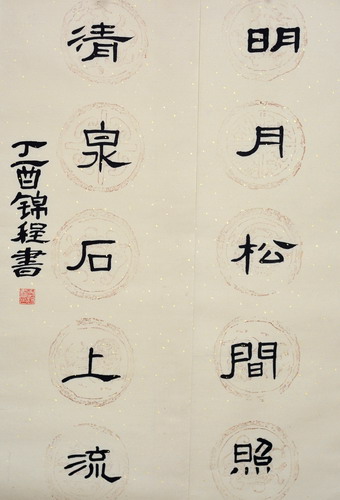 明月松間照
清泉石上流
丁酉錦程書